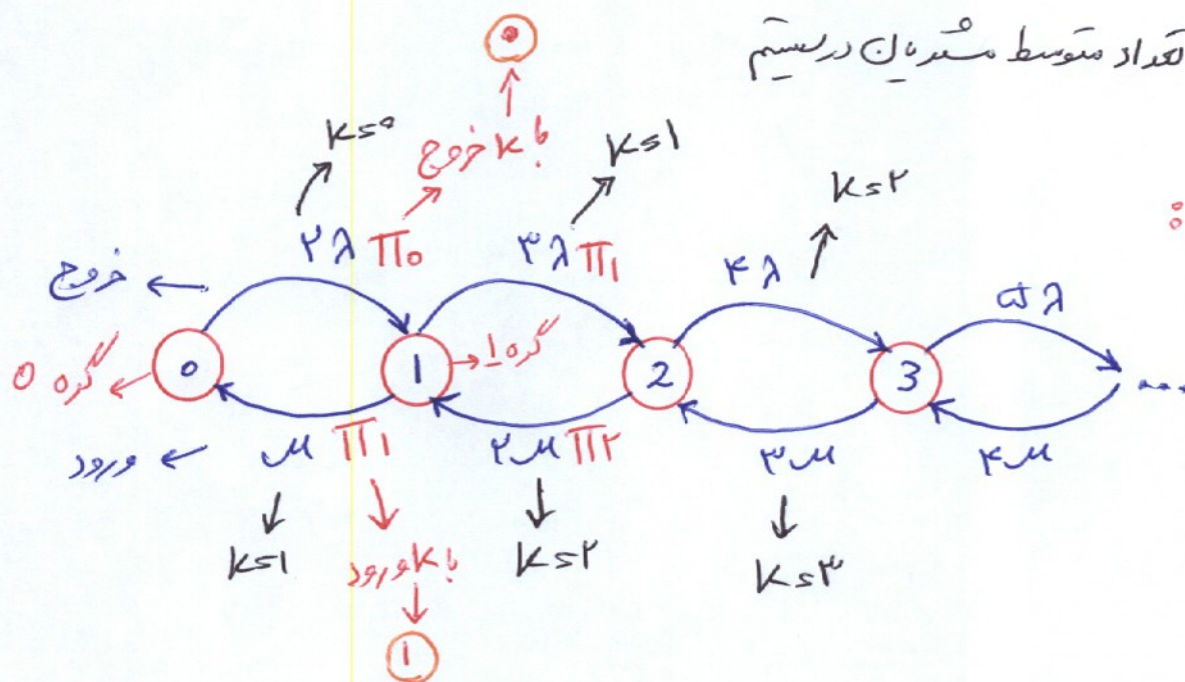 تعداد متوسط مشتریان در سیستم
۰
k=۰
با k خروج
k=۱
k=۲
:
۲λ π₀
۳λ π₁
۴λ
۵λ
خروج
گره 0
0
1
گره 1
2
3
...
ورود
μ π۱
۲μ π۲
۳μ
۴μ
k=۱
با k ورود
k=۲
k=۳
۱